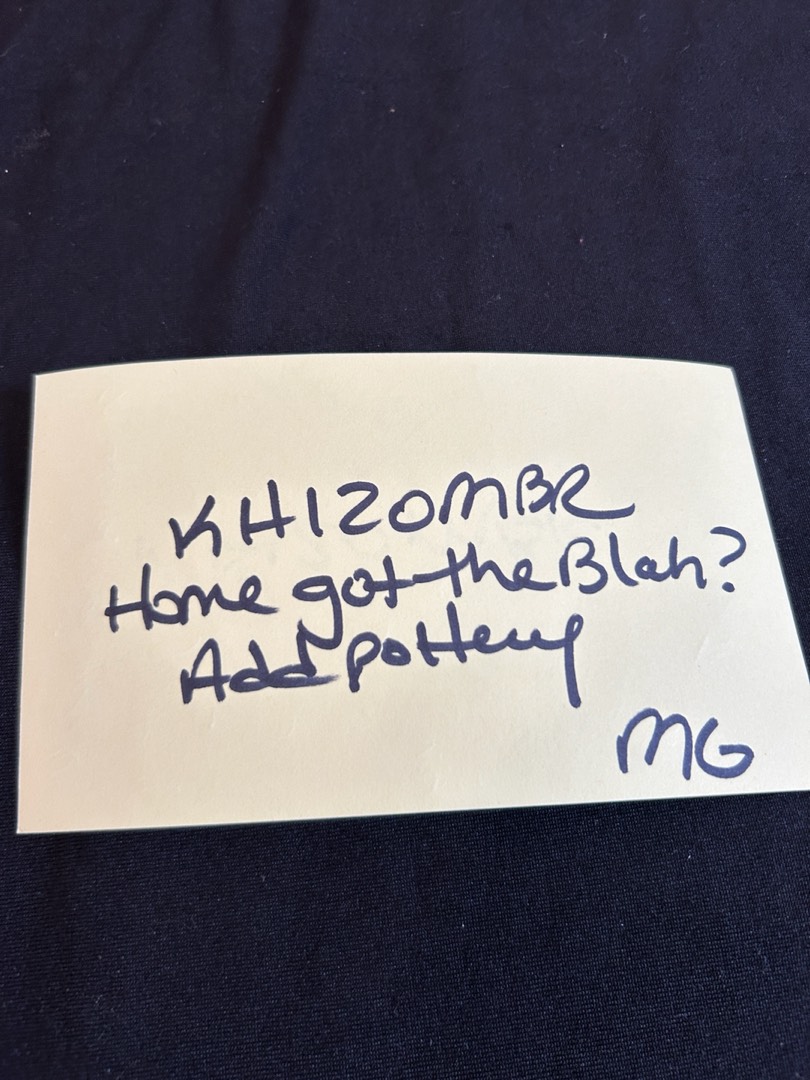 KHIZOMBR
Home got the Blah?
Add pottery
MG